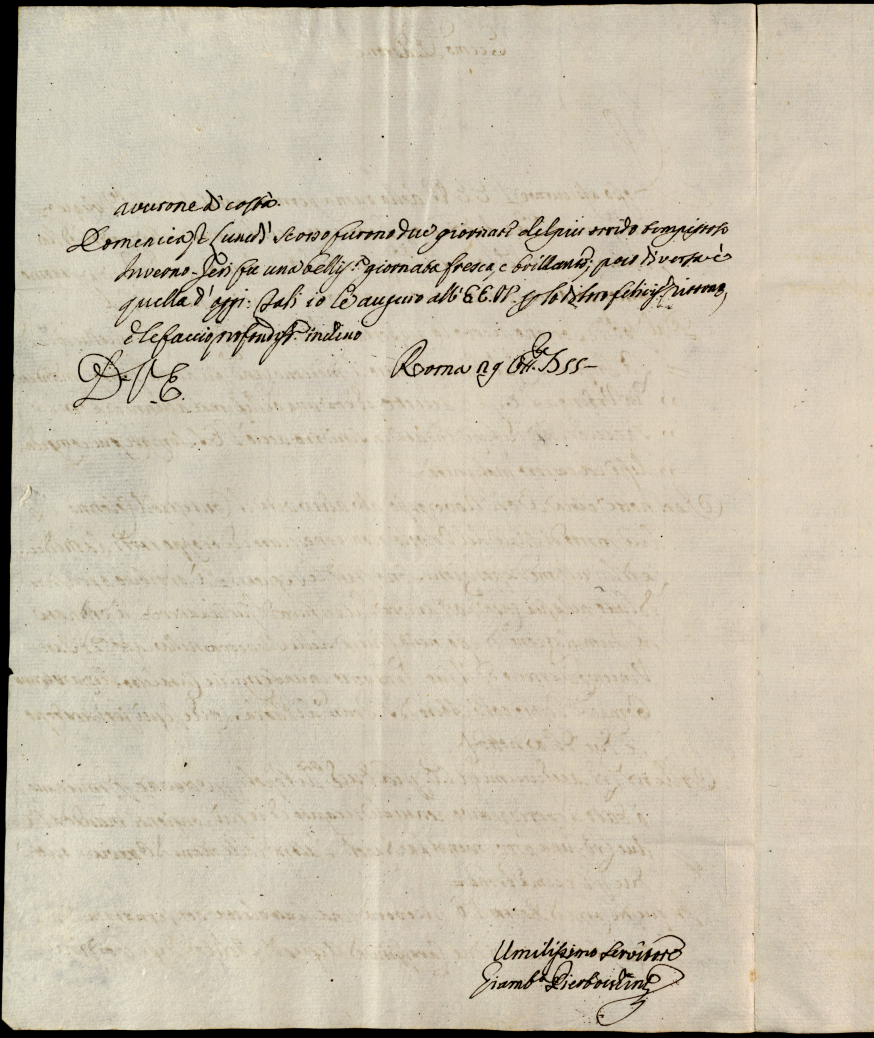 avversione di costà.
Domenica, e Lunedì scorso furono due giornate del più orrido tempestoso
Inverno. Jeri fu una bellis.ma giornata fresca, e brillante; però diversa è
quella d'oggi: tali io le auguro all'EE.VV. p lo di loro felicis.
e le faccio profondis.mo inchino
D. V. E. Roma 29 Ott.re
Umilissimo Servitore
Giamb.a